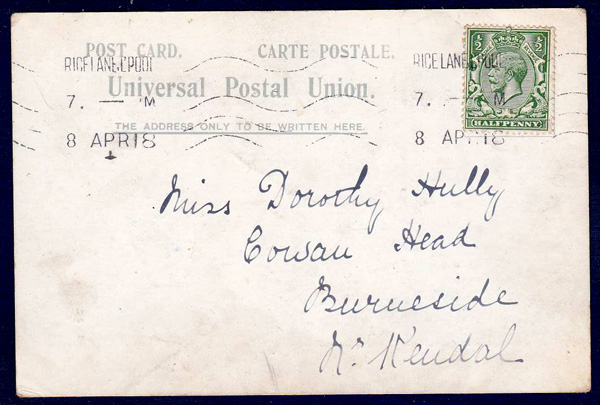 POST CARD. CARTE POSTALE.
RICE LANE L'POOL RICE LANE L'POOL
Universal Postal Union.
7. — M 7. — M
THE ADDRESS ONLY TO BE WRITTEN HERE.
8 APR 18 8 APR 18
½ ½
HALFPENNY
Miss Dorothy Hully
Cowan Head
Burneside
Nr Kendal